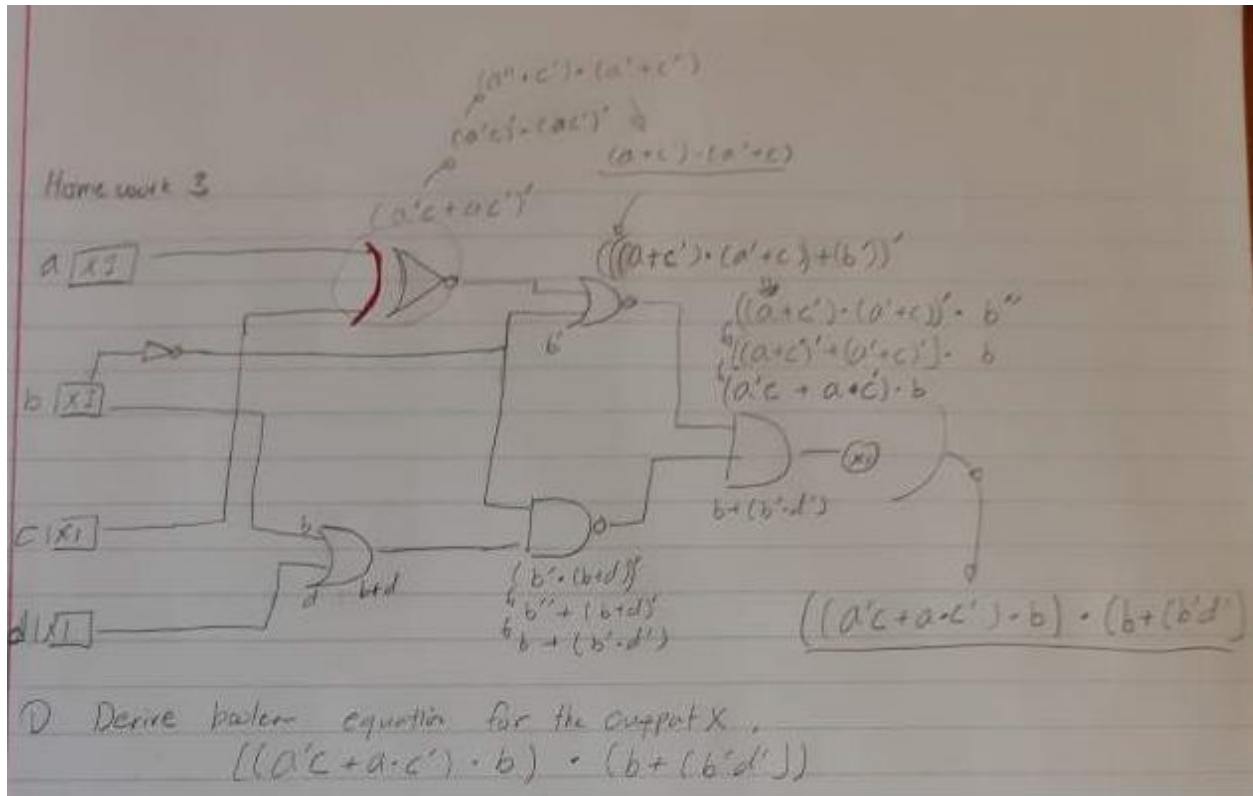 (a''+c')·(a'+c'')
(a'c)'·(ac')'
(a+c')·(a'+c)
Homework 3
(a'c+ac')'
a x1
(((a+c')·(a'+c)+(b'))'
((a+c')·(a'+c))'· b''
b'
[(a+c')'+(a'+c)']· b
(a'c + a•c')·b
b x1
x1
b+(b'·d')
c x1
b
d
b+d
(b'·(b+d))'
b''+(b+d)'
b+(b'·d')
d x1
((a'c+a·c')·b)·(b+(b'd'
① Derive boolem equation for the output X.
((a'c+a·c')·b) · (b+(b'd'))